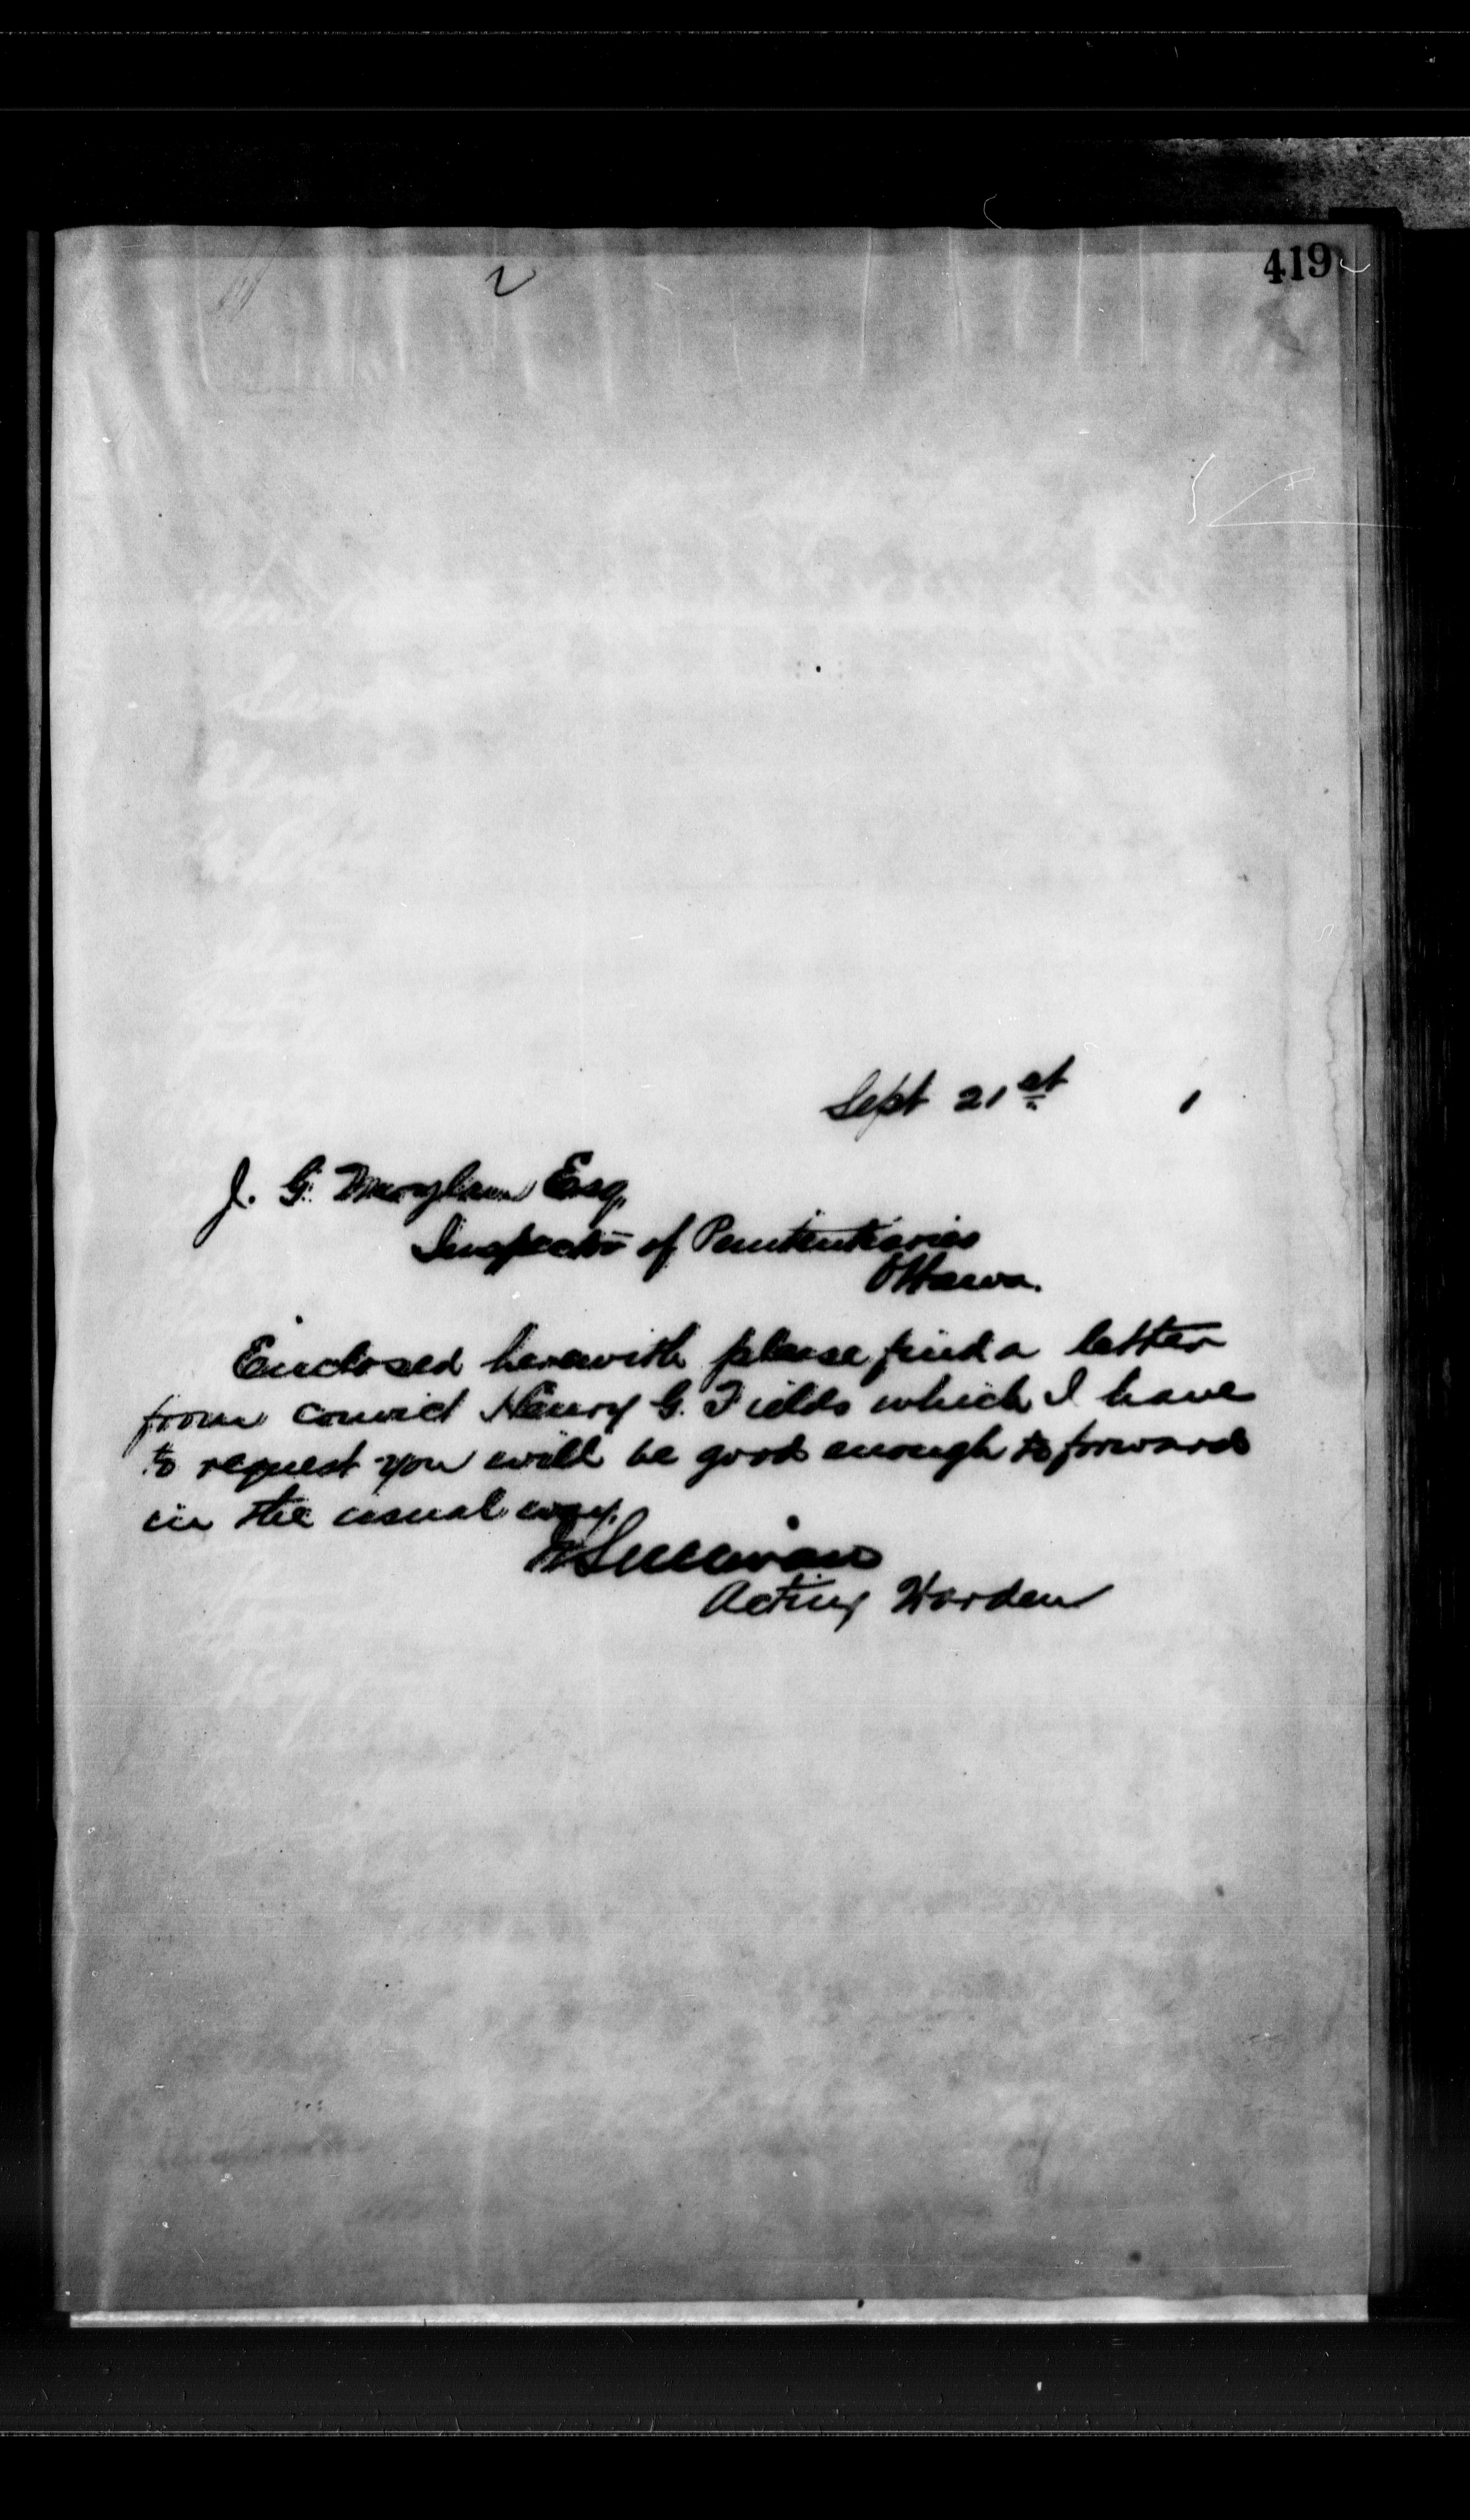 419
Sept 21st 1
J. G. Moylan Esq.
Inspector of Penitentiaries
Ottawa.
Enclosed herewith please find a letter
from convict Henry G. Fields which I have
to request you will be good enough to forward
in the usual way.
Sullivan
Acting Warden